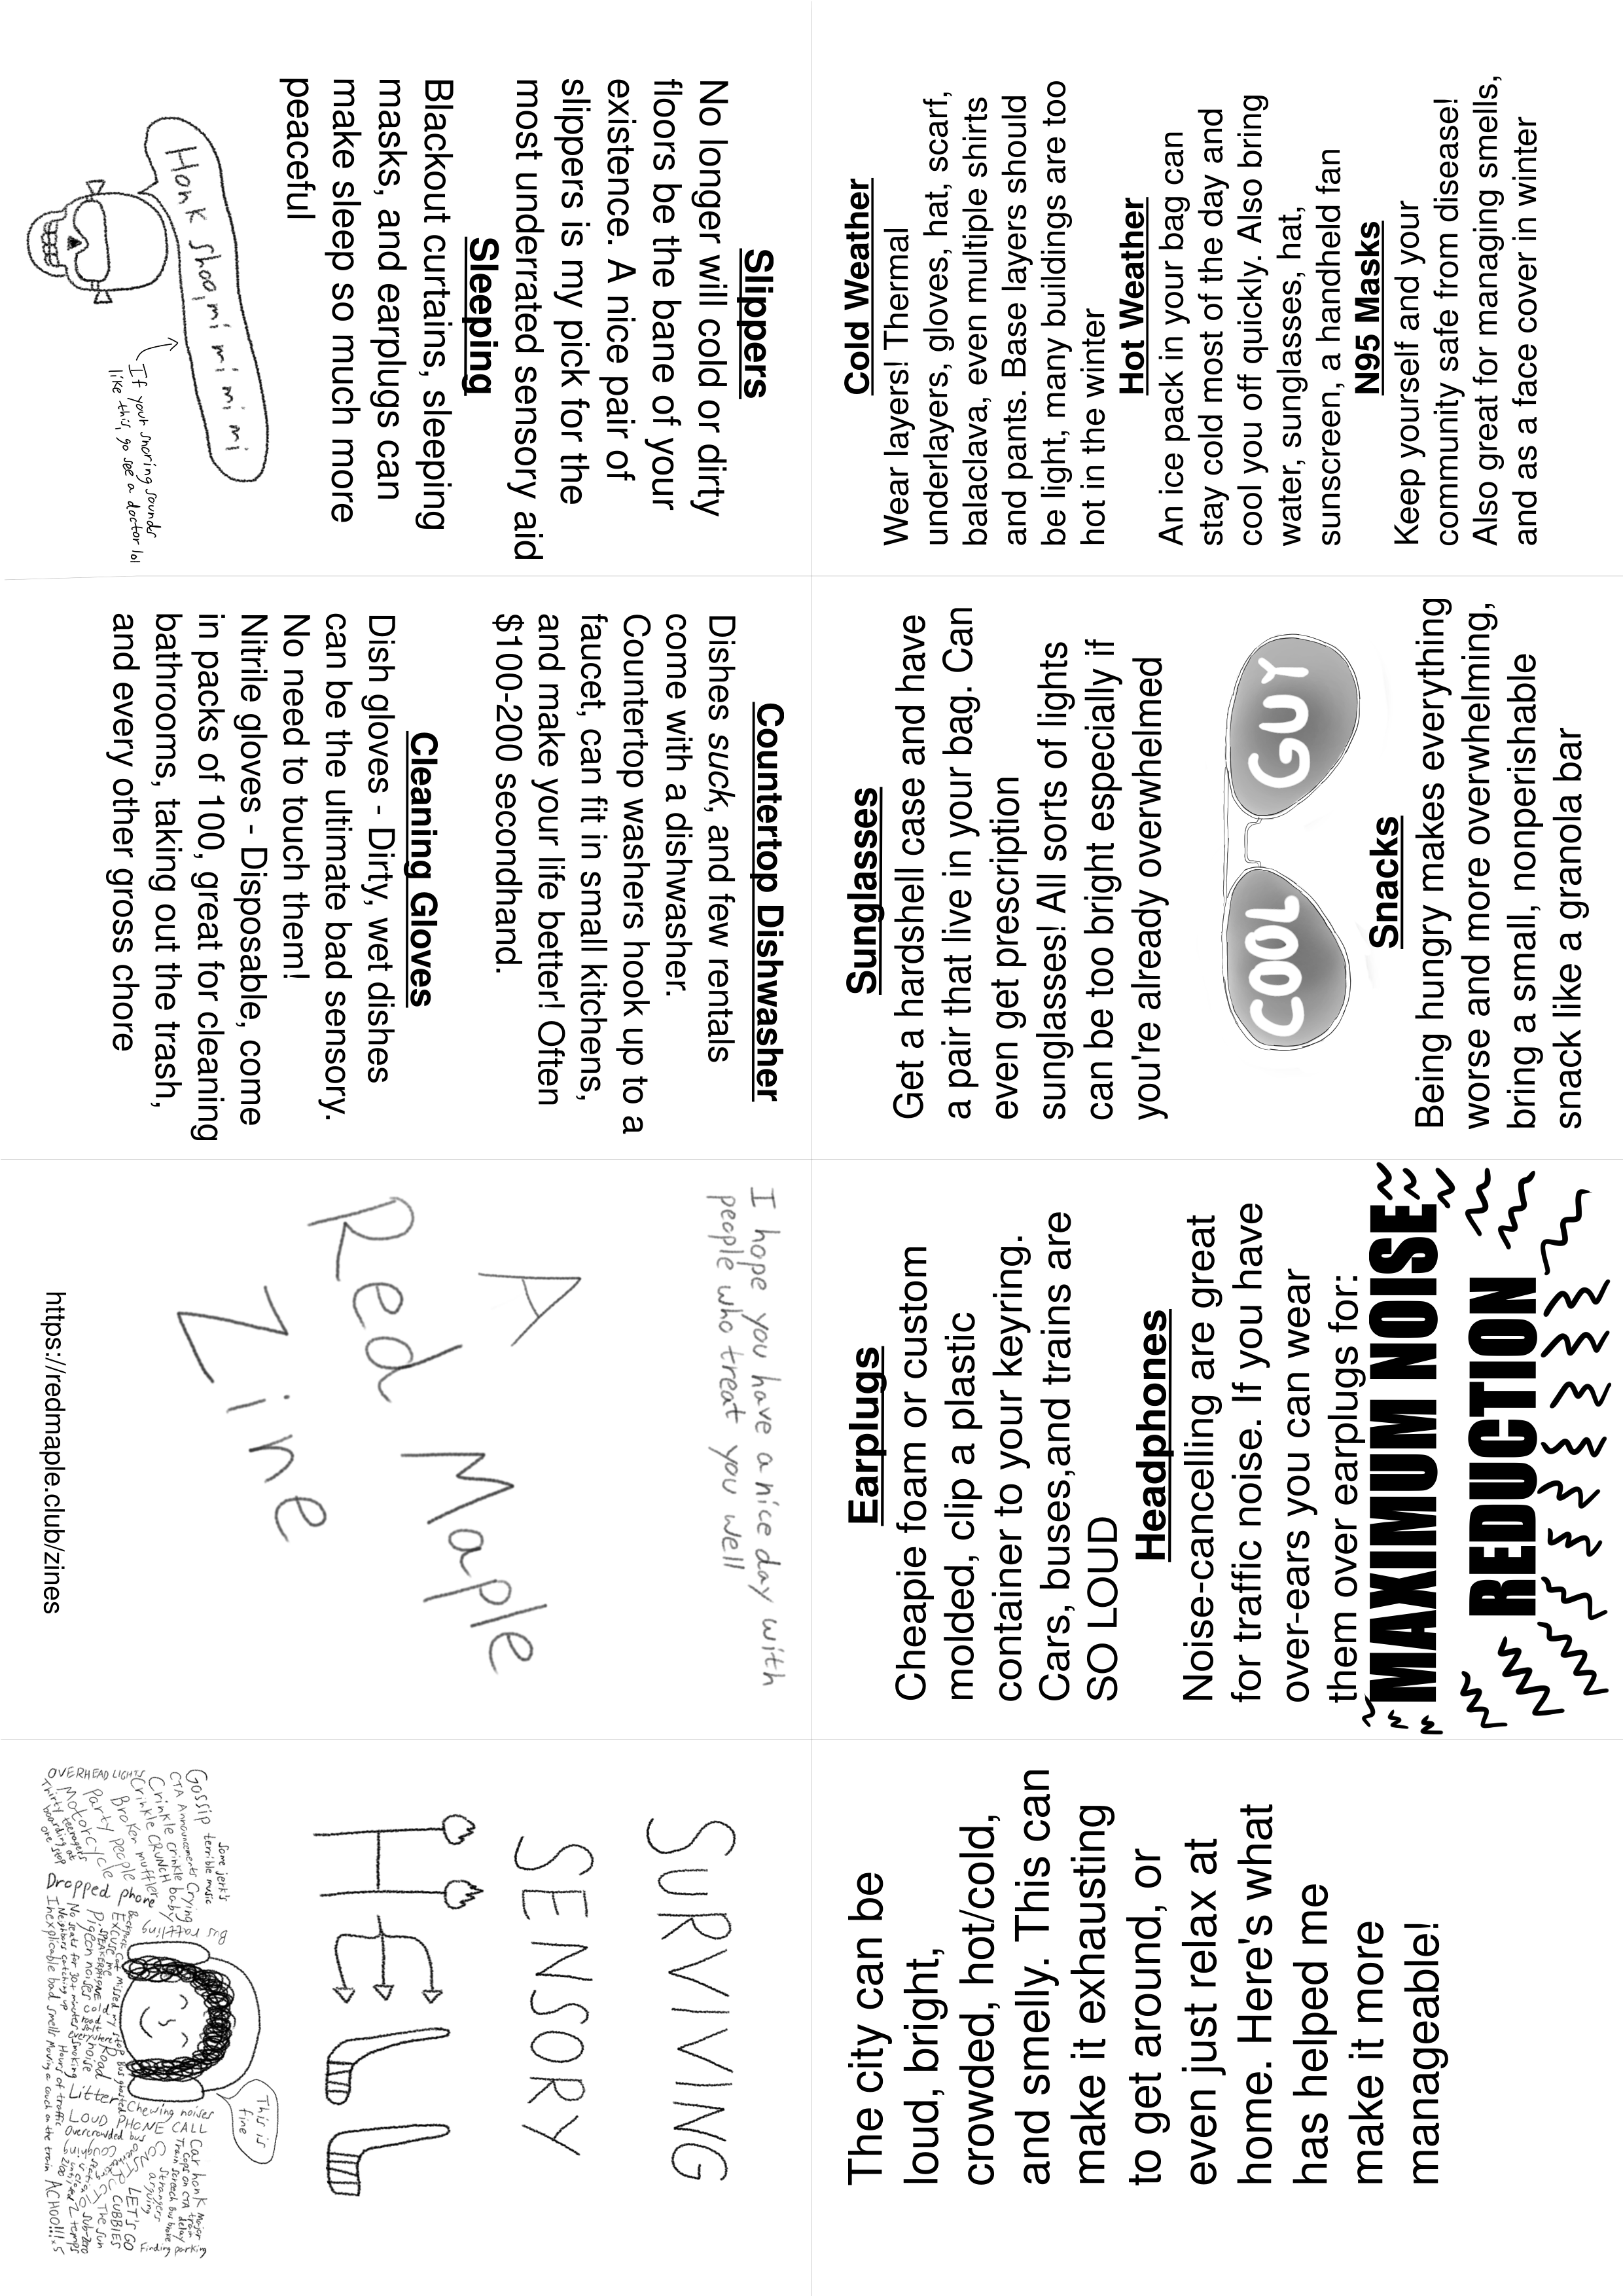 SURVIVING
SENSORY
HELL
This is
fine
Some jerk's
terrible music
Gossip
CTA Announcements
Crying baby
Crinkle crinkle
Crinkle CRUNCH
Broken muffler
Party people
OVERHEAD LIGHTS
Motorcycle
Thirty teenagers
boarding at
one stop
Dropped phone
Bus rattling
Backpack
Excuse me
SPEAKERPHONE
Pigeon noises
No seats for 30+ minutes
Neighbors catching up
Inexplicable bad smells
Road
noise
smoking
Hours of traffic
Moving a couch on the train
Litter
Chewing noises
LOUD PHONE CALL
Overcrowded bus
Coughing
Car honk
Major
train
delay
Cops on CTA
Train screech
Bus brake
Strangers
arguing
LET'S GO
CUBBIES
The sun
Sub-zero
temps
Finding parking
ACHOO!!! x5
The city can be
loud, bright,
crowded, hot/cold,
and smelly. This can
make it exhausting
to get around, or
even just relax at
home. Here's what
has helped me
make it more
manageable!
Earplugs
Cheapie foam or custom
molded, clip a plastic
container to your keyring.
Cars, buses,and trains are
SO LOUD
Headphones
Noise-cancelling are great
for traffic noise. If you have
over-ears you can wear
them over earplugs for:
MAXIMUM NOISE
REDUCTION
Sunglasses
Get a hardshell case and have
a pair that live in your bag. Can
even get prescription
sunglasses! All sorts of lights
can be too bright especially if
you're already overwhelmed
COOL GUY
Snacks
Being hungry makes everything
worse and more overwhelming,
bring a small, nonperishable
snack like a granola bar
Cold Weather
Wear layers! Thermal
underlayers, gloves, hat, scarf,
balaclava, even multiple shirts
and pants. Base layers should
be light, many buildings are too
hot in the winter
Hot Weather
An ice pack in your bag can
stay cold most of the day and
cool you off quickly. Also bring
water, sunglasses, hat,
sunscreen, a handheld fan
N95 Masks
Keep yourself and your
community safe from disease!
Also great for managing smells,
and as a face cover in winter
Slippers
No longer will cold or dirty
floors be the bane of your
existence. A nice pair of
slippers is my pick for the
most underrated sensory aid
Sleeping
Blackout curtains, sleeping
masks, and earplugs can
make sleep so much more
peaceful
Honk shoo, mi mi mi mi mi
If your snoring sounds
like this, go see a doctor lol
Countertop Dishwasher
Dishes suck, and few rentals
come with a dishwasher.
Countertop washers hook up to a
faucet, can fit in small kitchens,
and make your life better! Often
$100-200 secondhand.
Cleaning Gloves
Dish gloves - Dirty, wet dishes
can be the ultimate bad sensory.
No need to touch them!
Nitrile gloves - Disposable, come
in packs of 100, great for cleaning
bathrooms, taking out the trash,
and every other gross chore
I hope you have a nice day with
people who treat you well
A
Red Maple
Zine
https://redmaple.club/zines